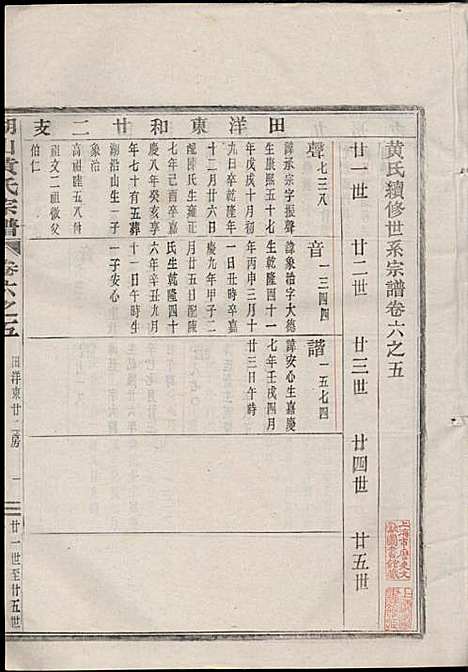 黃氏續修世系宗譜卷六之五
廿一世 廿二世 廿三世 廿四世 廿五世
田洋東和廿二支
聲 七三八
諱承宗字振聲
生康熙五十七
年戊戌十月初
九日卒乾隆年
十二月廿六日
配陳氏生雍正
七年己酉卒嘉
慶八年癸亥享
年七十有五葬
湖沿山生一子
象治
高祖睦五八舟
祖文二祖徽父
伯仁
音 一三四四
諱象治字大德
生乾隆四十一
年丙申三月十
一日丑時卒嘉
慶九年甲子二
月廿五日配陳
氏生乾隆四十
六年辛丑九月
十七日卯時生
一子安心
諧 一五七四
諱安心生嘉慶
七年壬戌四月
廿三日午時
山黃氏宗譜 卷六之五
田洋東廿二房 一
廿一世至廿五世
上海市歷史文
獻圖書館藏